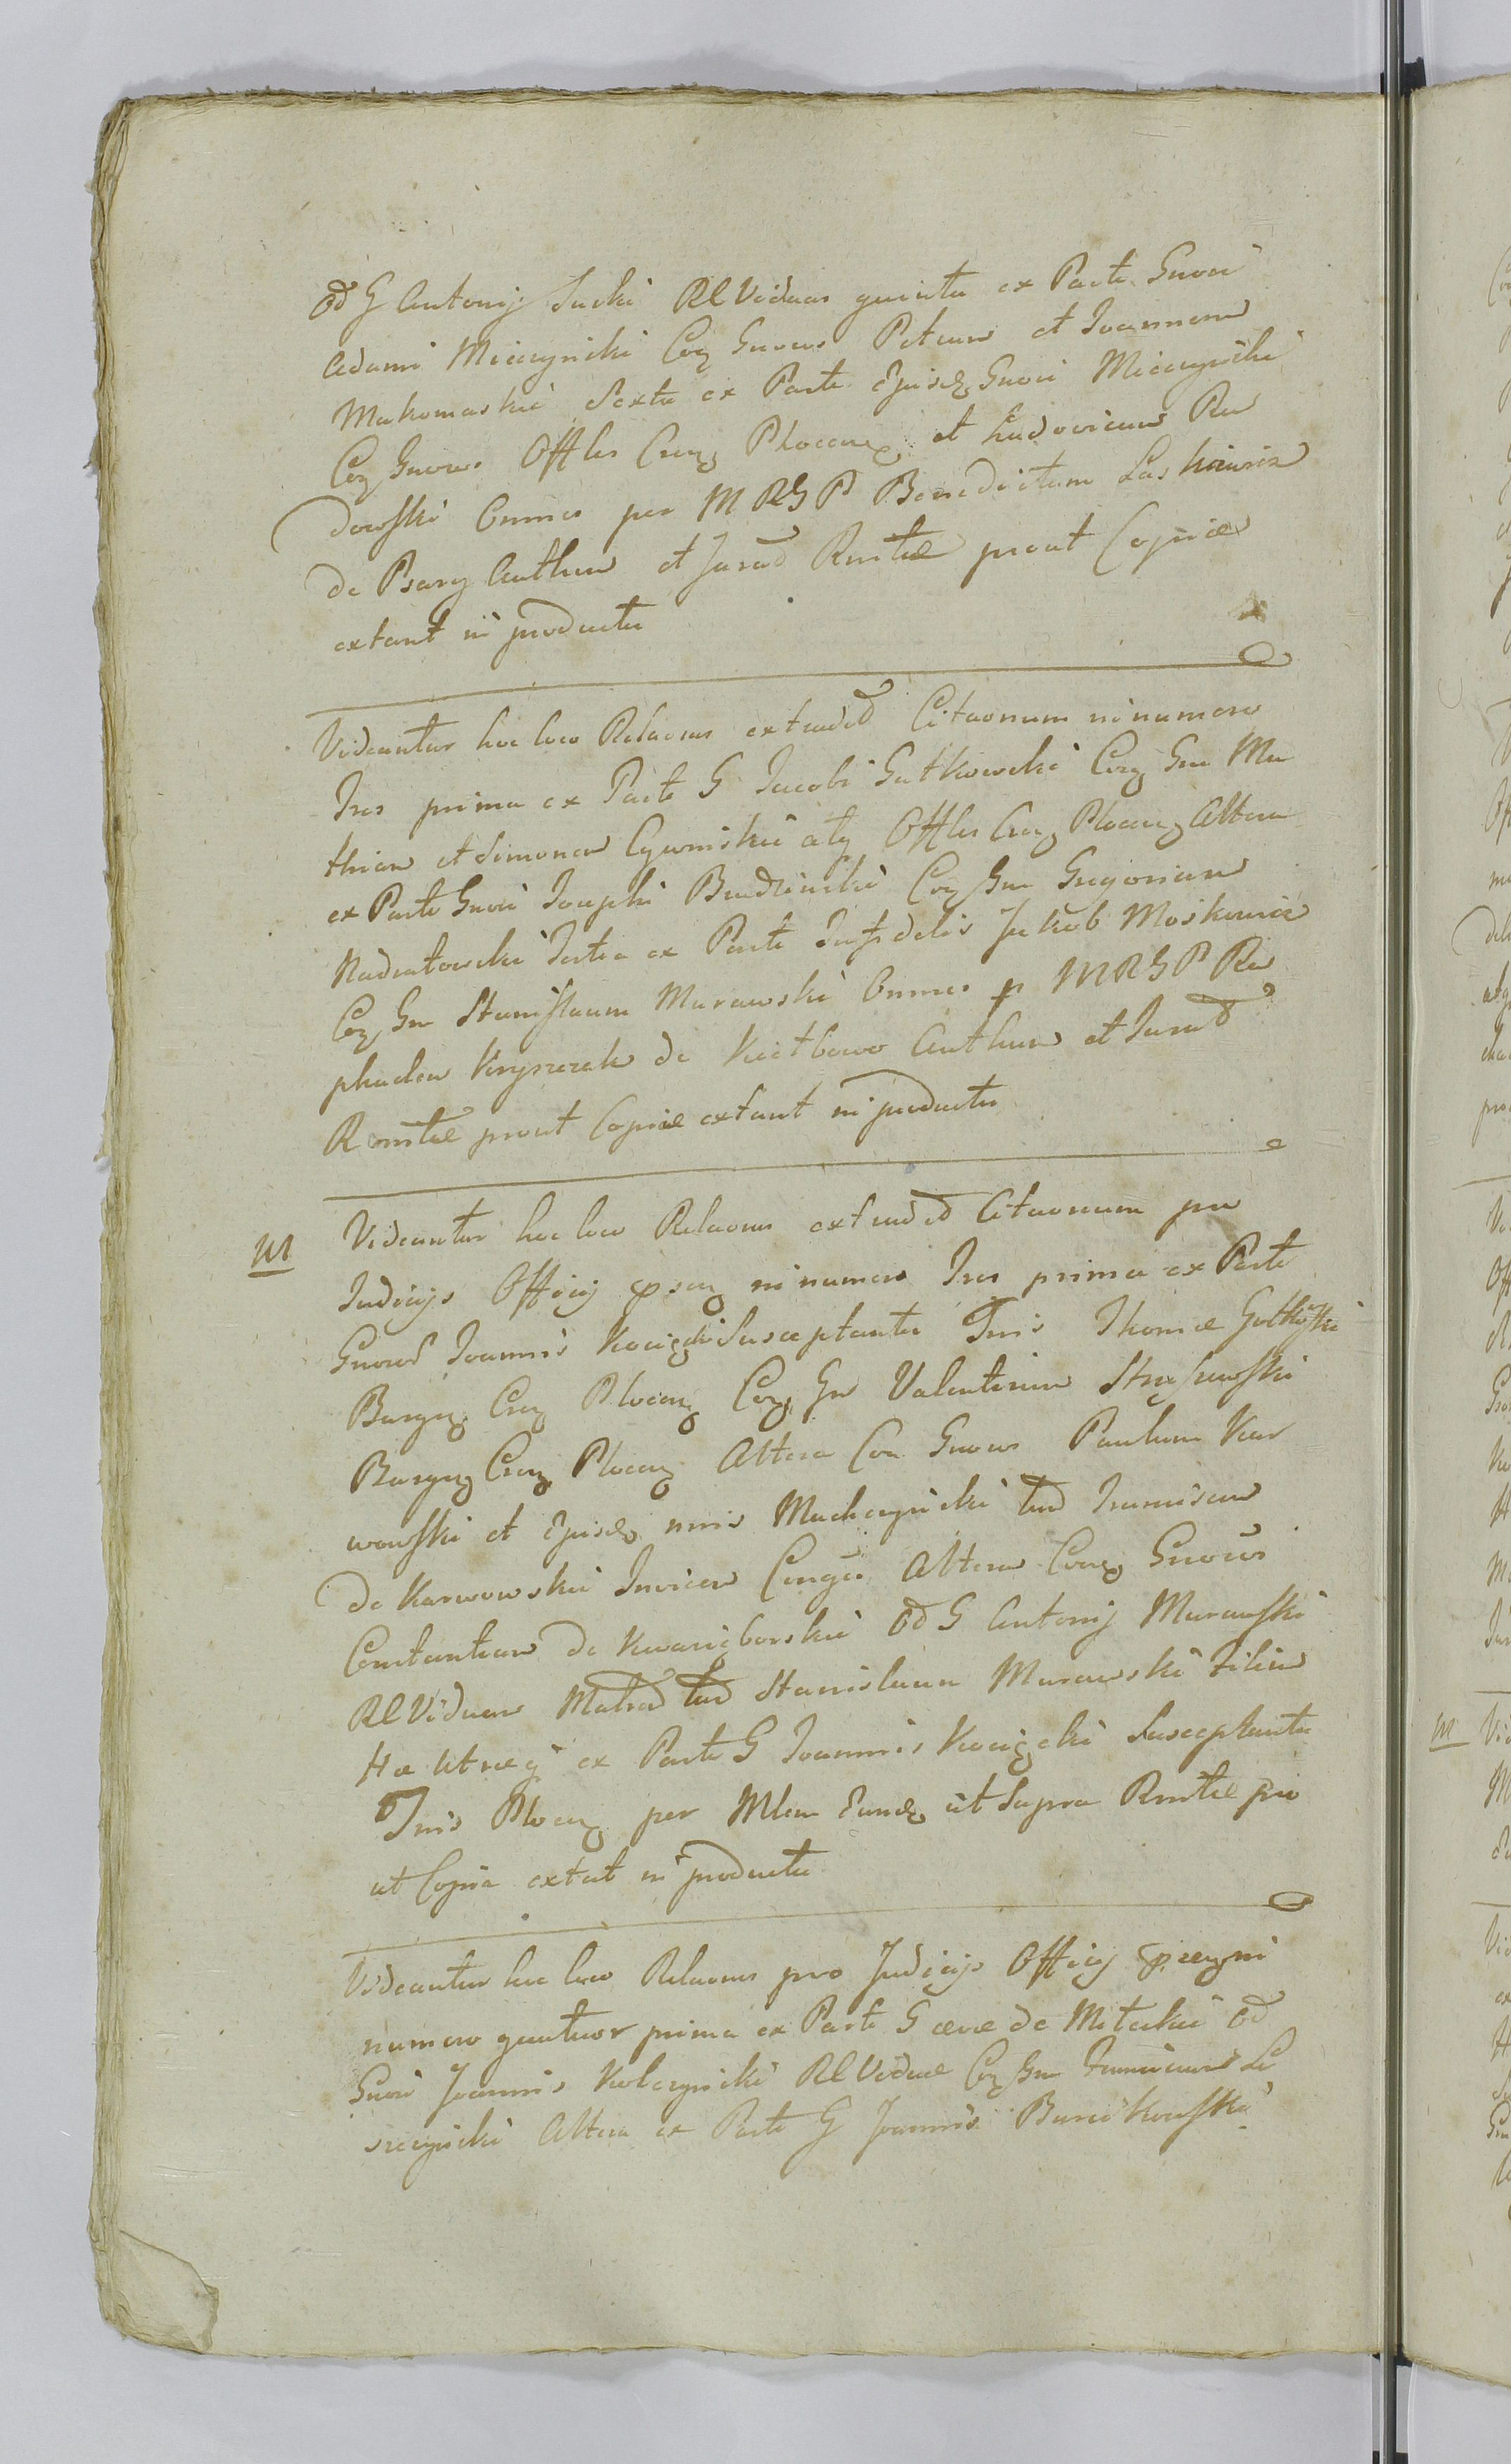 Od G Antonij Sucki RlViduas quinta ex Parte Gnosi
Adami Miczynski Cog Gnosos Petrum et Joannem
Makomaskie Sexta ex Parte Ejusdq Gnosi Miczynski
Cog Gnosos Offles Creg Plocen et Ludovicum Ru
dowski Omnes per MRGP Benedictum Laskiewicz
de Psary Authen et Jurad Rnitæ prout Copiæ
extant in productu
Videantur hoc loco Relaones extradd Citaonum in numero
Tres prima ex Parte G Jacobi Gutkowski Cog Gn Ma
thiam et Simonem Cywinskie atq Offles Creg Plocen Altera
ex Parte Gnosi Josephi Brudzinski Cog Gn Gregorium
Nadratowski Tertia ex Parte Infidelis Jakob Moskowicz
Cog Gn Stanislaum Murawski Omnes p MRGP Ra
phaelem Kryszczak de Kietbowo Authen et Jurad
Rnitæ prout Copiæ extant in productu
M Videantur hoc loco Relaones extradd Citaonum pro
Judicijs Officij in numero Tres prima ex Parte
Gnosi Joannis Kocięcki Susceptantis Tris Thomæ
Burgg Creg Plocen Cog Gn Valentinum
Burgg Creg Plocen Altera Con Gnosos Paulum Kar
wowski et Ejusdq nnis Machczynski tud Franciscam
de Karwowskie Invicem Conges Altera Cong Gnosos
Constantiam de Kwasięborskie Od G Antonij Murawski
RlViduam Matrad tud Stanislaum Murawski Filium
Hæ Utræq ex Parte G Joannis Kocięcki Susceptantis
Tris Plocen per Mlem Eundq ut Supra Rnitæ pro
ut Copia extat in productu
Videantur hoc loco Relaones pro Judicijs Officij in
numero quatuor prima ex Parte Gævæ de Miteckie Od
Gnosi Joannis Kolczynski RlViduæ Cog Gn Franciscum Le
szczynski Altera ex Parte G Joannis